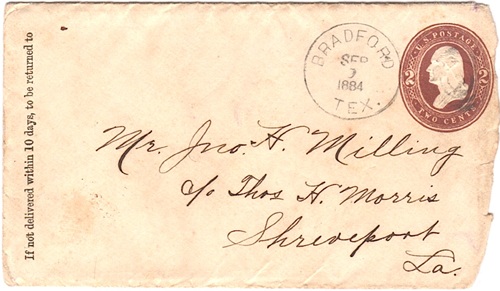 If not delivered within 10 days, to be returned to
BRADFORD
SEP
1884
TEX.
U.S. POSTAGE
2 2
TWO CENTS
Mr. Jno. H. Milling
c/o Thos H. Morris
Shreveport
La.